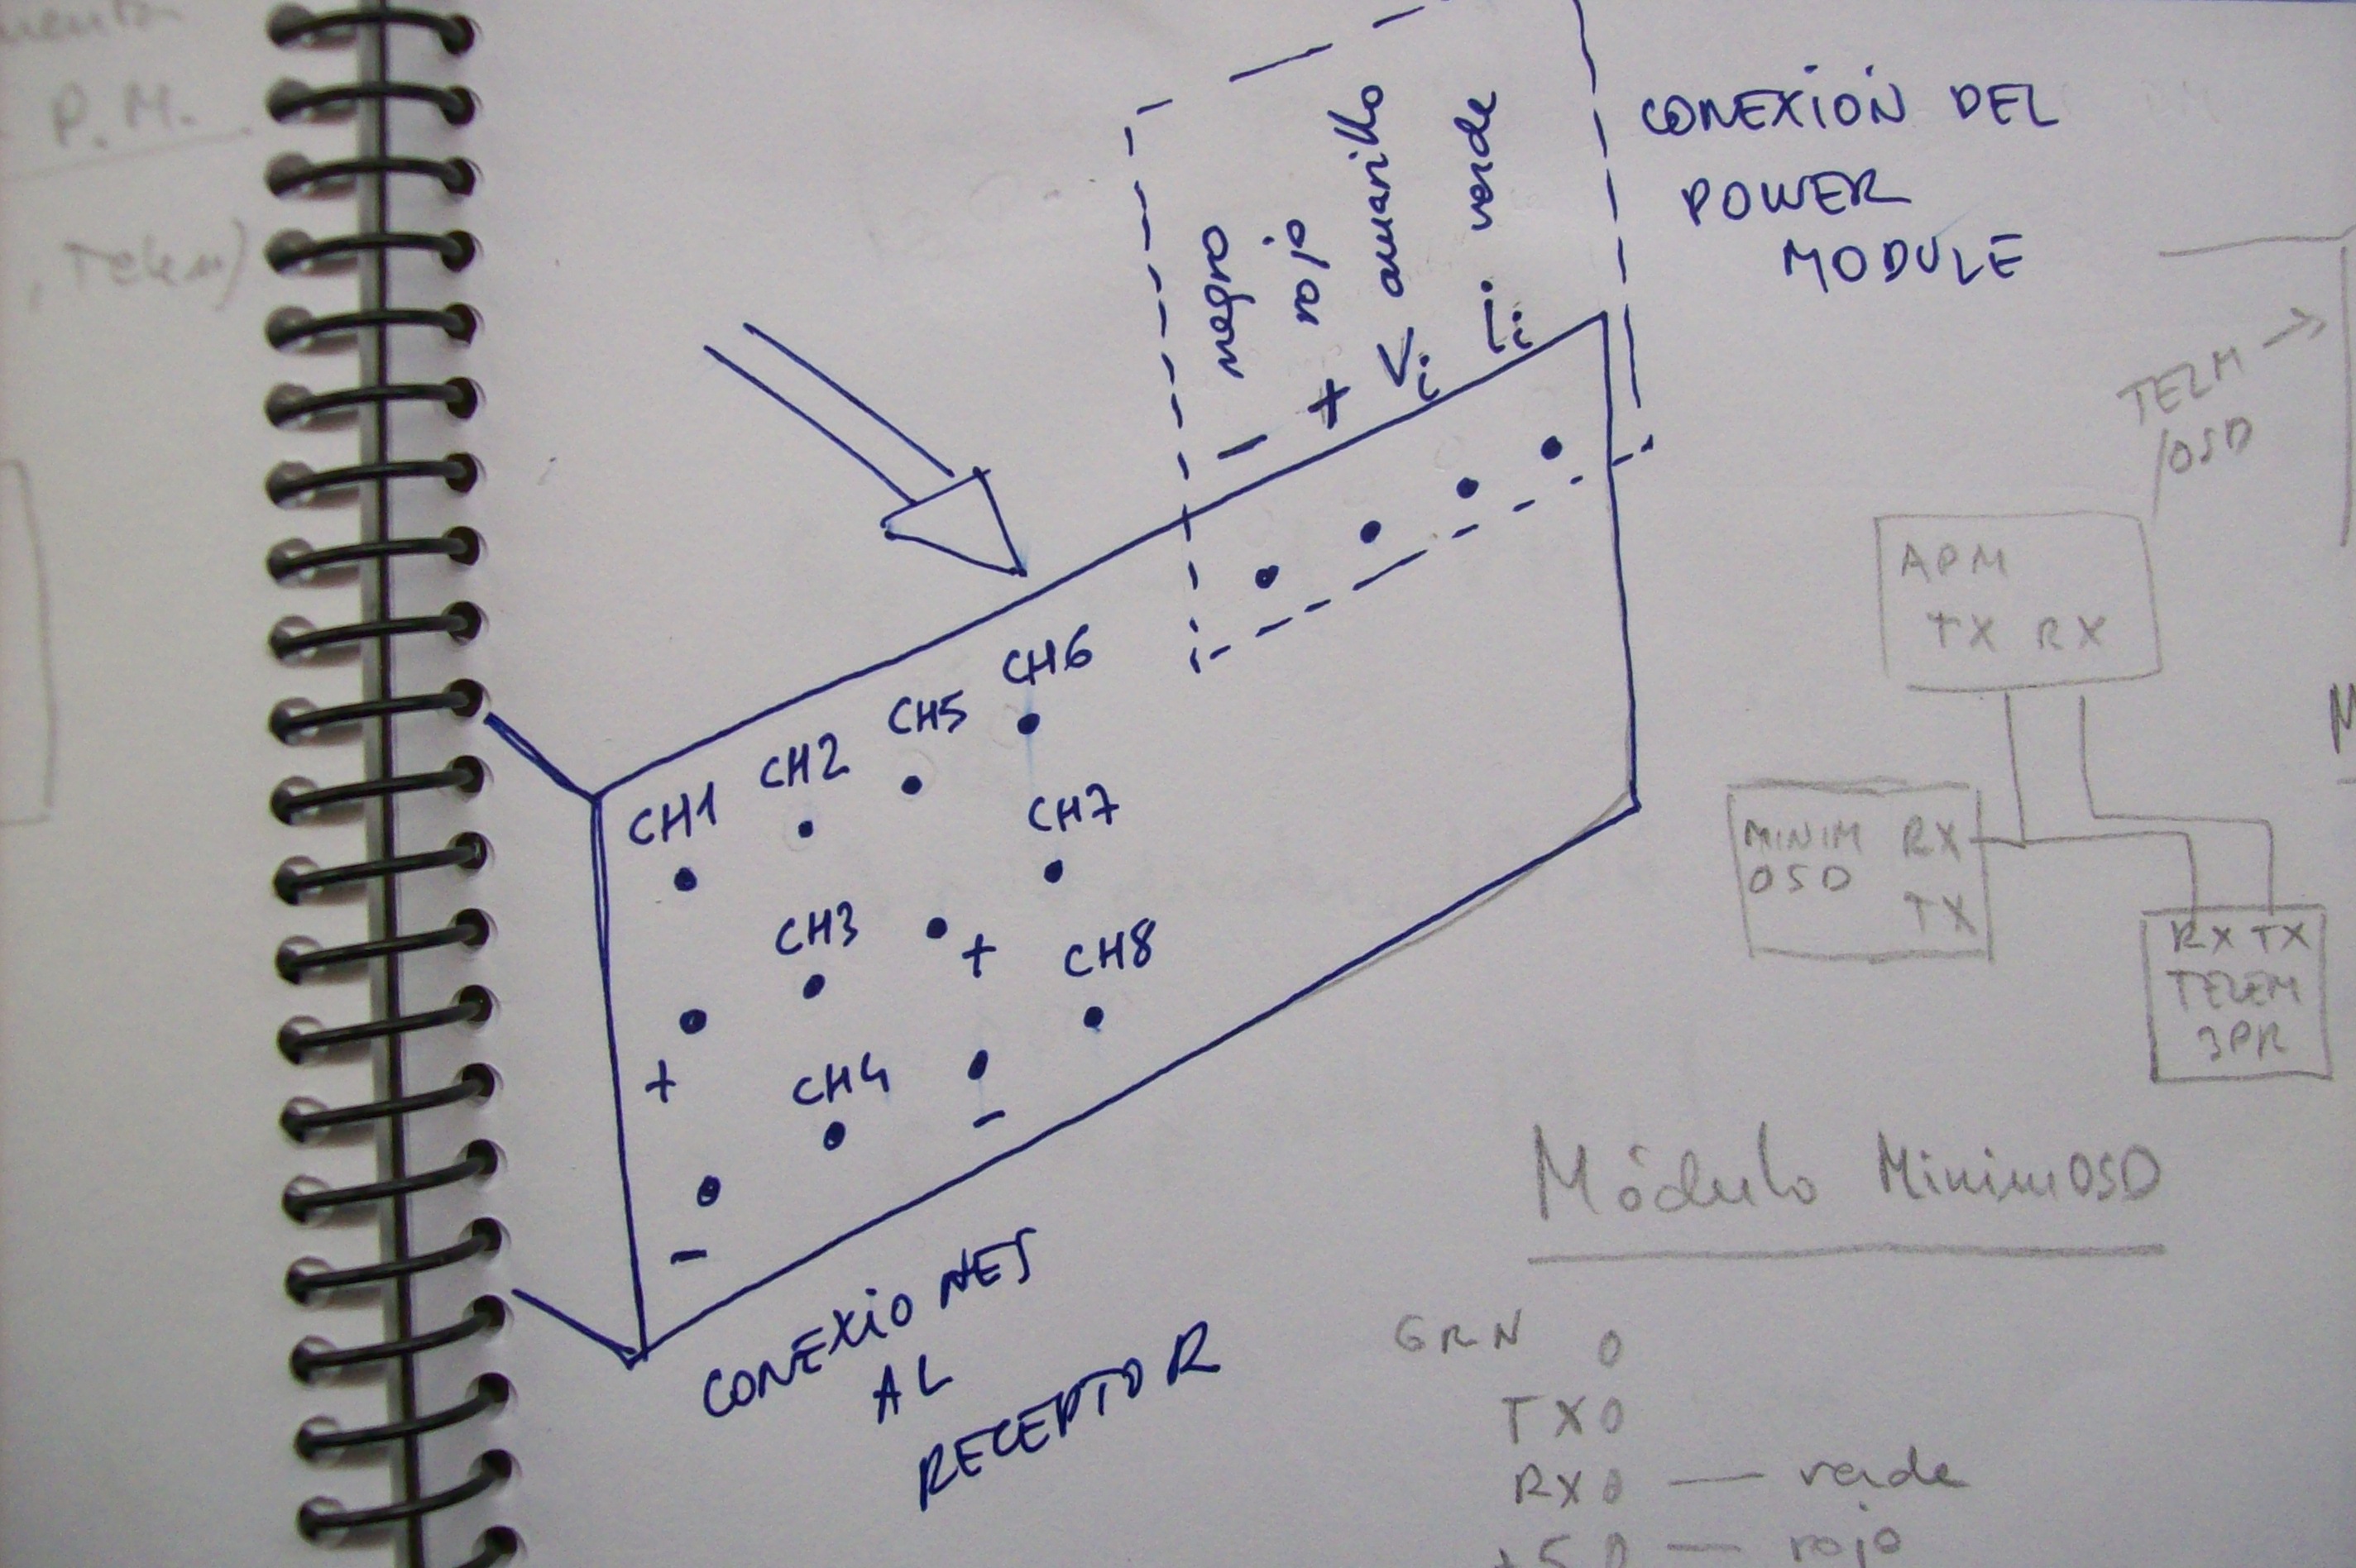 P.M.
, Telem)
negro
rojo
amarillo
verde
- + Vi Ii
CONEXIÓN DEL
POWER
MODULE
CH1 CH2 CH5 CH6
CH3 + CH7
+ CH4 - CH8
-
CONEXIONES
AL
RECEPTOR
TELM →
/OSD
APM
TX RX
MINIM RX
OSD TX
RX TX
TELEM
3PR
Módulo MinimOSD
GRN O
TX O
RX O — verde
+5 O — rojo